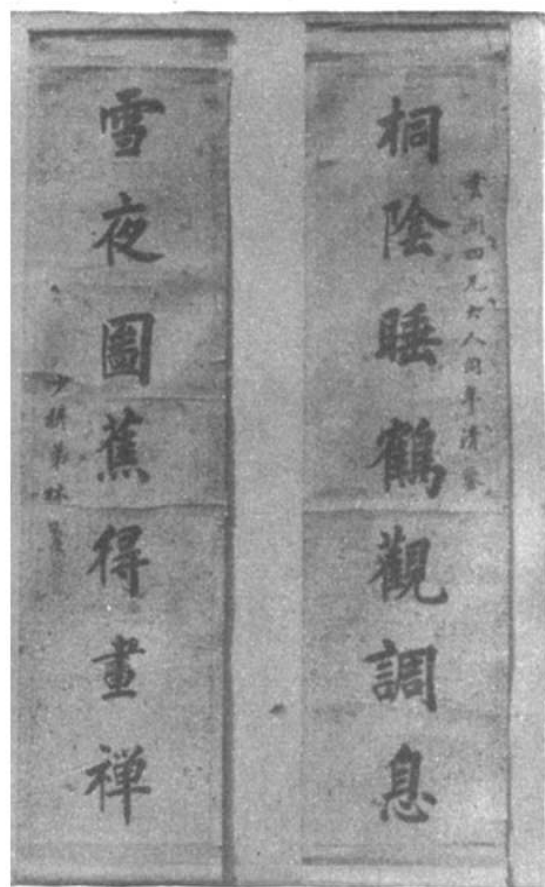 桐陰睡鶴觀調息
四兄大人同年清鑒
雪夜圖蕉得畫禅
少穆弟林